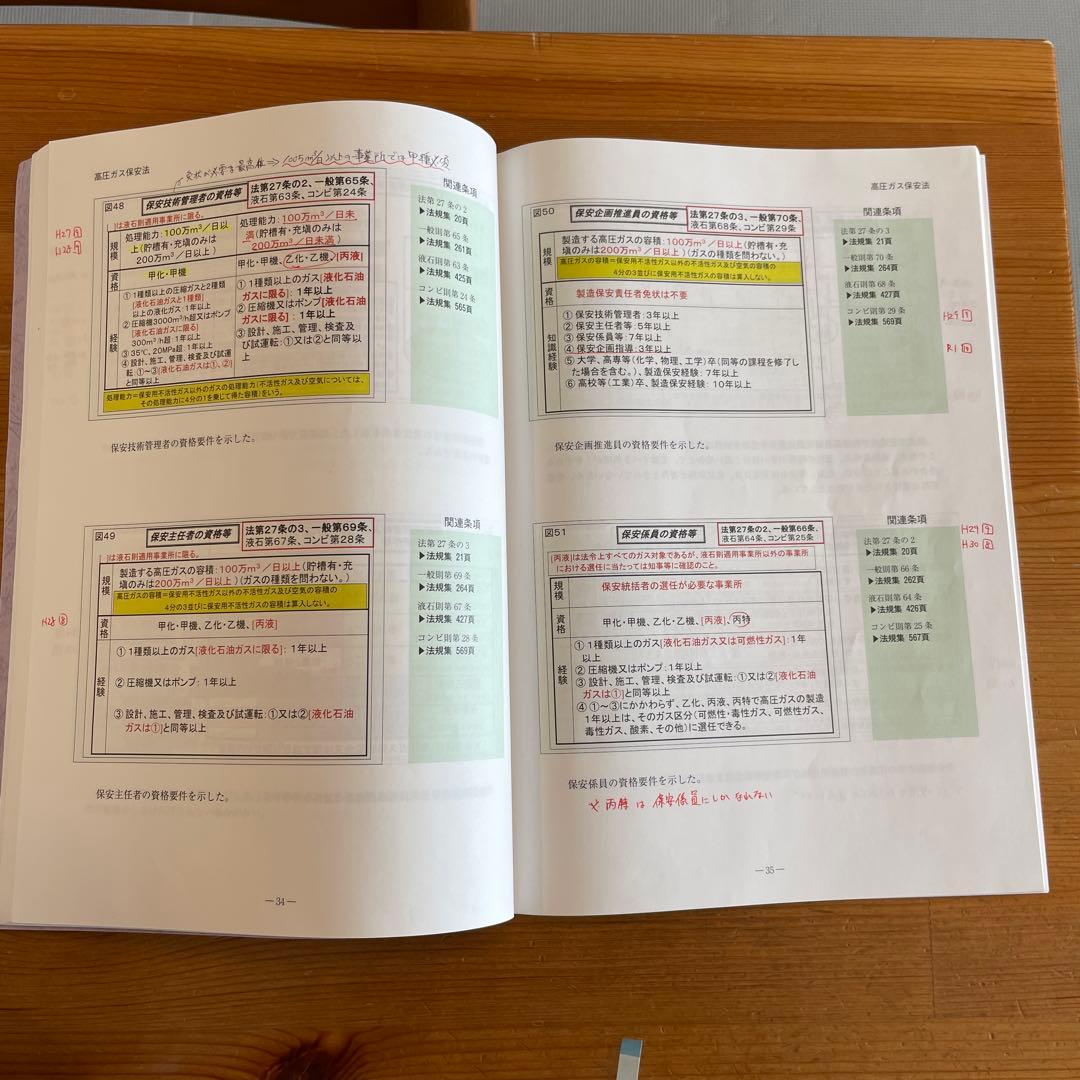 高圧ガス保安法
図48
保安技術管理者の資格等
法第27条の2、一般第65条、
液石第63条、コンビ第24条
[ ]は液石則適用事業所に限る。
規模
処理能力:100万m³/日以
上(貯槽有・充塡のみは
200万m³/日以上)
処理能力:100万m³/日未
満(貯槽有・充塡のみは
200万m³/日未満)
資格
甲化・甲機
甲化・甲機、乙化・乙機、[丙液]
経験
① 1種類以上の圧縮ガスと2種類
[液化石油ガスと1種類]
以上の液化ガス:1年以上
② 圧縮機3000m³/h超又はポンプ
[液化石油ガスに限る]
300m³/h超:1年以上
③ 35℃、20MPa超:1年以上
④ 設計、施工、管理、検査及び試運
転:①~③[液化石油ガスは①、②]
と同等以上
① 1種類以上のガス[液化石油
ガスに限る]:1年以上
② 圧縮機又はポンプ[液化石油
ガスに限る]:1年以上
③ 設計、施工、管理、検査及
び試運転:①又は②と同等以
上
処理能力=保安用不活性ガス以外のガスの処理能力(不活性ガス及び空気については、
その処理能力に4分の1を乗じて得た容積)をいう。
関連条項
法第 27 条の 2
▶法規集 20頁
一般則第 65 条
▶法規集 261頁
液石則第 63 条
▶法規集 425頁
コンビ則第 24 条
▶法規集 565頁
保安技術管理者の資格要件を示した。
図49
保安主任者の資格等
法第27条の3、一般第69条、
液石第67条、コンビ第28条
[ ]は液石則適用事業所に限る。
規模
製造する高圧ガスの容積:100万m³/日以上(貯槽有・充
塡のみは200万m³/日以上)(ガスの種類を問わない。)
高圧ガスの容積=保安用不活性ガス以外の不活性ガス及び空気の容積の
4分の3並びに保安用不活性ガスの容積は算入しない。
H28
資格
甲化・甲機、乙化・乙機、[丙液]
経験
① 1種類以上のガス[液化石油ガスに限る]:1年以上
② 圧縮機又はポンプ:1年以上
③ 設計、施工、管理、検査及び試運転:①又は②[液化石油
ガスは①]と同等以上
関連条項
法第 27 条の 3
▶法規集 21頁
一般則第 69 条
▶法規集 264頁
液石則第 67 条
▶法規集 427頁
コンビ則第 28 条
▶法規集 569頁
保安主任者の資格要件を示した。
—34—
高圧ガス保安法
図50
保安企画推進員の資格等
法第27条の3、一般第70条、
液石第68条、コンビ第29条
規模
製造する高圧ガスの容積:100万m³/日以上(貯槽有・充
塡のみは200万m³/日以上)(ガスの種類を問わない。)
高圧ガスの容積=保安用不活性ガス以外の不活性ガス及び空気の容積の
4分の3並びに保安用不活性ガスの容積は算入しない。
資格
製造保安責任者免状は不要
知識経験
① 保安技術管理者:3年以上
② 保安主任者等:5年以上
③ 保安係員等:7年以上
④ 保安企画指導:3年以上
⑤ 大学、高専等(化学、物理、工学)卒(同等の課程を修了し
た場合を含む。)、製造保安経験:7年以上
⑥ 高校等(工業)卒、製造保安経験:10年以上
関連条項
法第 27 条の 3
▶法規集 21頁
一般則第 70 条
▶法規集 264頁
液石則第 68 条
▶法規集 427頁
コンビ則第 29 条
▶法規集 569頁
H29
R1
保安企画推進員の資格要件を示した。
図51
保安係員の資格等
法第27条の2、一般第66条、
液石第64条、コンビ第25条
[丙液]は法令上すべてのガス対象であるが、液石則適用事業所以外の事業所
における選任に当たっては知事等に確認のこと。
規模
保安統括者の選任が必要な事業所
資格
甲化・甲機、乙化・乙機、[丙液]、丙特
経験
① 1種類以上のガス[液化石油ガス又は可燃性ガス]:1年
以上
② 圧縮機又はポンプ:1年以上
③ 設計、施工、管理、検査及び試運転:①又は②[液化石油
ガスは①]と同等以上
④ ①~③にかかわらず、乙化、丙液、丙特で高圧ガスの製造
1年以上は、そのガス区分(可燃性・毒性ガス、可燃性ガス、
毒性ガス、酸素、その他)に選任できる。
関連条項
法第 27 条の 2
▶法規集 20頁
一般則第 66 条
▶法規集 262頁
液石則第 64 条
▶法規集 426頁
コンビ則第 25 条
▶法規集 567頁
H29
H30
保安係員の資格要件を示した。
丙特は保安係員にしかなれない
—35—